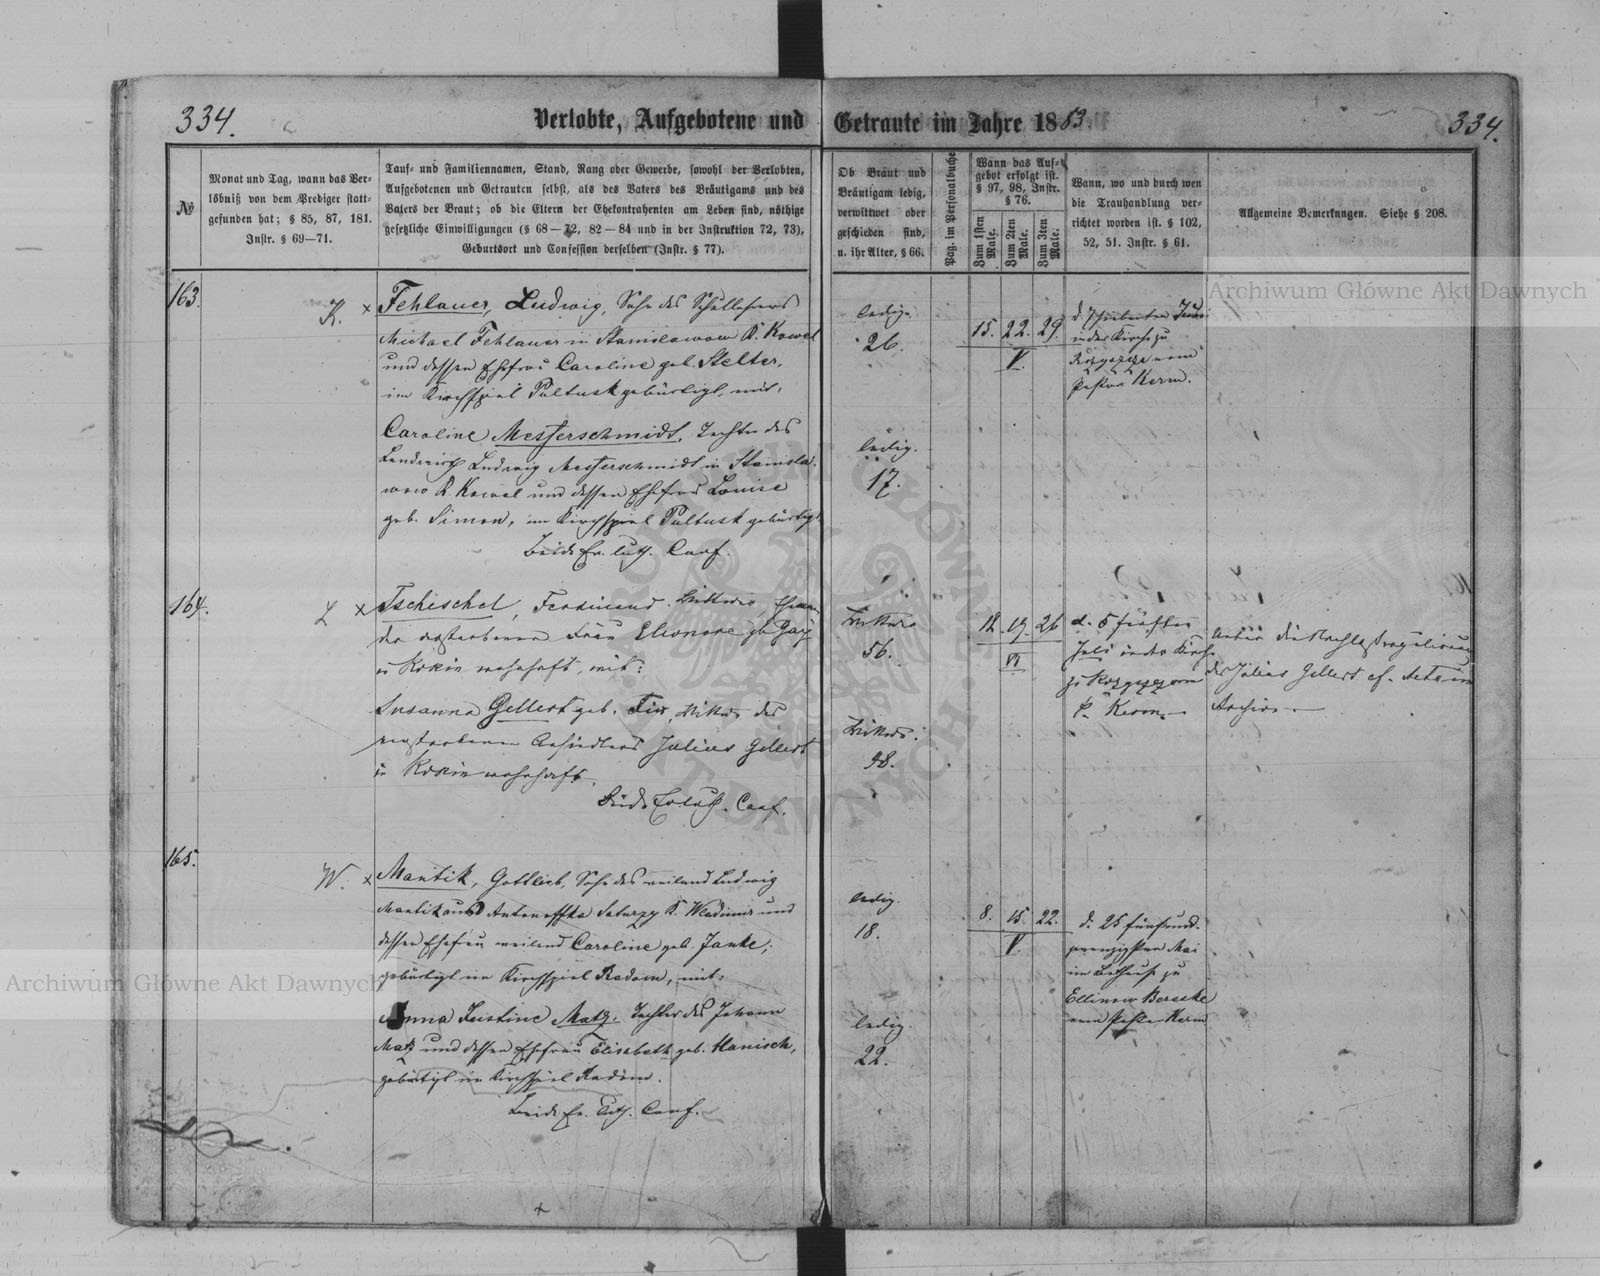 334.
Verlobte, Aufgebotene und
Getraute im Jahre 1883.
334.
№
Monat und Tag, wann das Ver-
löbniß von dem Prediger statt-
gefunden hat; § 85, 87, 181.
Instr. § 69—71.
Tauf- und Familiennamen, Stand, Rang oder Gewerbe, sowohl der Verlobten,
Aufgebotenen und Getrauten selbst, als des Vaters des Bräutigams und des
Vaters der Braut; ob die Eltern der Ehekontrahenten am Leben sind, nöthige
gesetzliche Einwilligungen (§ 68—72, 82—84 und in der Instruktion 72, 73),
Geburtsort und Confession derselben (Instr. § 77).
Ob Braut und
Bräutigam ledig,
verwittwet oder
geschieden sind,
u. ihr Alter, § 66.
Pag. im Personalbuche
Wann das Auf-
gebot erfolgt ist.
§ 97, 98, Instr.
§ 76.
Zum 1sten
Male.
Zum 2ten
Male.
Zum 3ten
Male.
Wann, wo und durch wen
die Trauhandlung ver-
richtet worden ist. § 102,
52, 51. Instr. § 61.
Allgemeine Bemerkungen. Siehe § 208.
163.
K. x
Fehlauer, Ludwig, Sohn des Schullehrers
Michael Fehlauer in Stanislawow K. Kowel
und dessen Ehefrau Caroline geb. Stelter,
im Kirchspiel Pultusk gebürtigt, mit:
Caroline Messerschmidt, Tochter des
Landwirth Ludwig Messerschmidt in Stanisla-
wow K. Kowel und dessen Ehefrau Louise
geb. Simon, im Kirchspiel Pultusk gebürtigt
Beide Ev. luth. Conf.
ledig.
26.
ledig.
17.
15. 22. 29.
V.
in der Kirche zu
Rozyszcze vom
Pastor Kerm.
164.
L x
Tschischel, Ferdinand, Wittwer,
der verstorbenen Frau Eleonore geb
in Rokin wohnhaft, mit:
Susanna Gellert geb. Wittwe des
verstorbenen Ansiedlers Julius Gellert
in Rokin wohnhaft.
Beide Ev. luth. Conf.
Wittwer
56.
Wittwe.
48.
12 19. 26
VI
d. 5 fünften
Juli in der Kirche
zu Rozyszcze vom
P. Kerm.
Ueber die
des Julius Gellert cf. Acta im
Archiv
165.
W. x
Mantik, Gottlieb, Sohn des weiland Ludwig
Mantik aus Antonoffka K. Wladimir und
dessen Ehefrau weiland Caroline geb. Janke;
gebürtigt im Kirchspiel Radom, mit:
Anna Justine Matz, Tochter des Johann
Matz und dessen Ehefrau Elisabeth geb. Hanisch,
gebürtigt im Kirchspiel Radom.
Beide Ev. Luth. Conf.
ledig.
18.
ledig.
22.
8. 15. 22.
V.
d. 25 fünfund-
zwanzigsten Mai
im Bethause zu
Ellinow
vom Pastor Kerm
Archiwum Główne Akt Dawnych
Archiwum Główne Akt Dawnych